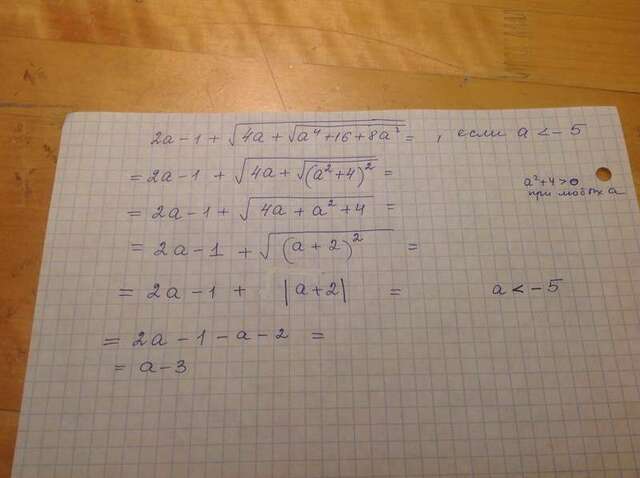 2a-1+√(4a+√(a⁴+16+8a²))= , если a<-5
=2a-1+√(4a+√((a²+4)²))=
a²+4>0
при любых a
=2a-1+√(4a+a²+4)=
=2a-1+√((a+2)²)=
=2a-1+|a+2|= a<-5
=2a-1-a-2=
=a-3